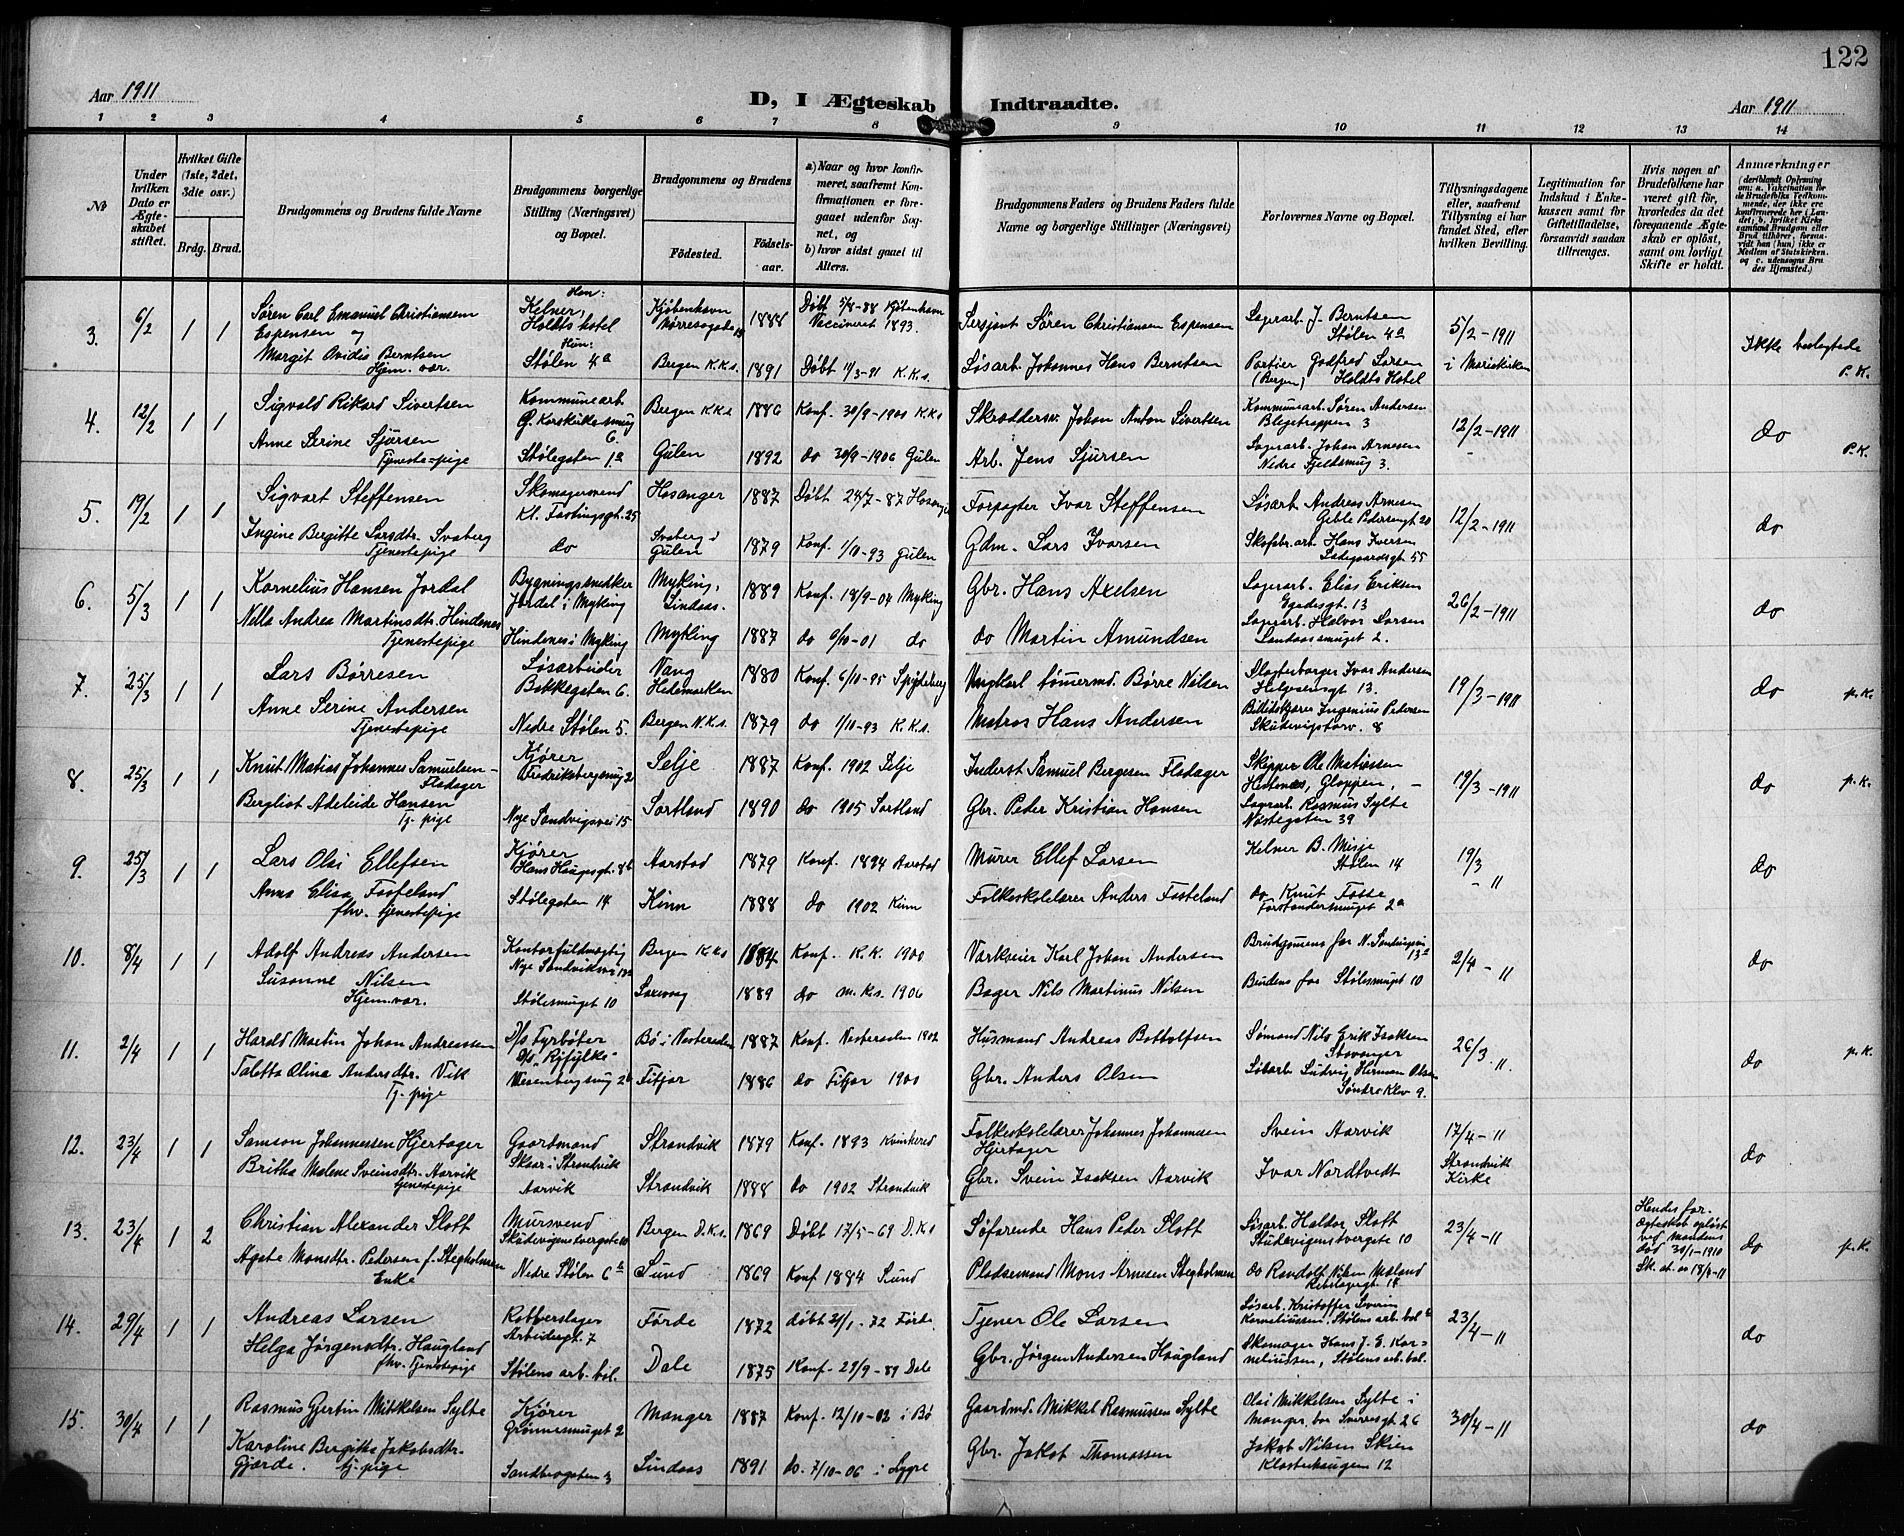 122
Aar 1911
D, I Ægteskab Indtraadte.
Aar 1911
1 2 3 4 5 6 7 8 9 10 11 12 13 14
No
Under hvilken Dato er Ægteskabet stiftet.
Hvilket Gifte (1ste, 2det, 3die osv.)
Brdg. Brud.
Brudgommens og Brudens fulde Navne
Brudgommens borgerlige Stilling (Næringsvei) og Bopæl.
Brudgommens og Brudens
Fødested. Fødselsaar.
a) Naar og hvor konfirmeret, saafremt Konfirmationen er foregaaet udenfor Sognet, og
b) hvor sidst gaaet til Alters.
Brudgommens Faders og Brudens Faders fulde Navne og borgerlige Stillinger (Næringsvei)
Forlovernes Navne og Bopæl.
Tillysningsdagene eller, saafremt Tillysning ei har fundet Sted, efter hvilken Bevilling.
Legitimation for Indskud i Enkekassen samt for Giftetilladelse, forsaavidt saadan tiltrænges.
Hvis nogen af Brudefolkene har været gift før, hvorledes da det foregaaende Ægteskab er opløst, samt om lovligt Skifte er holdt.
Anmærkninger
(deriblandt Oplysning om: a. Vakcination for de Brudefolks Vedkommende, der ikke ere konfirmerede her i Landet; b. hvilket Kirkesamfund Brudgom eller Brud tilhører, forsaavidt han (hun) ikke er Medlem af Statskirken, og c. udensogns Brudes Hjemsted.)
3. 6/2 1 1 Søren Carl Emanuel Christiansen Espensen og Han: Kelner, Holdts hotel Kjøbenhavn 1888 Døbt 5/8-88 Kjøbenhavn Vaccineret 1893. Sersjant Søren Christiansen Espensen Lagerarb. J. Berntsen Stølen 4a 5/2-1911 Ikke beslegtede
Margit Ovidia Berntsen Hjem. vær. Hun: Stølen 4a Bergen K.K.s. 1891 Døbt 11/3-91 K.K.s. Løsarb. Johannes Hans Berntsen Portier Godfred Larsen (Bergen) Holdts Hotel i Mariekirken P.K.
4. 12/2 1 1 Sigvald Rikard Sivertsen Kommunearb. Ø. Korskirkesmug 6. Bergen K.K.s 1886 Konf. 30/9-1900 K.K.s Skræddersv. Johan Anton Sivertsen Kommunearb. Søren Andersen Blegetrappen 3 12/2-1911 do
Anne Serine Sjursen Tjenestepige Stølegaten 1a Gulen 1892 do 30/9-1906 Gulen Arb. Jens Sjursen Lagerarb. Johan Arnesen Nedre Fjeldsmug 3. P.K.
5. 19/2 1 1 Sigvart Steffensen Skomagersvend Kl. Fastingsgt. 25 Hosanger 1887 Døbt 24/7-87 Hosanger Forpagter Ivar Steffensen Løsarb. Andreas Arnesen Geble Pedersengt 20 12/2-1911 do
Ingine Bergitte Larsdtr. Svaberg Tjenestepige do Svaberg i Gulen 1879 Konf. 1/10-93 Gulen Gdm. Lars Ivarsen Skofabr.arb. Hans Iversen Ladegaardsgt 55
6. 5/3 1 1 Kornelius Hansen Jordal Bygningssnedker Jordal i Myking Myking, Lindaas. 1889 Konf. 18/9-04 Myking Gbr. Hans Axelsen Lagerarb. Elias Eriksen Egedesgt. 13 26/2-1911 do
Nella Andrea Martinsdtr. Hindenes Tjenestepige Hindenes i Myking Myking 1887 do 6/10-01 do do Martin Amundsen Lagerarb. Halvor Larsen Landaassmuget 2.
7. 25/3 1 1 Lars Børresen Løsarbeider Bakkegaten 6. Vang Hedemarken 1880 Konf. 6/10-95 Børre Nilsen Slagterborger Ivar Andersen Helgesensgt 13. 19/3-1911 do p.K.
Anne Serine Andersen Tjenestepige Nedre Stølen 5. Bergen N.K.s. 1879 do 1/10-93 K.K.s. Matros Hans Andersen Ingenius Pedersen Skudevigstorv. 8
8. 25/3 1 1 Knut Matias Johannes Samuelsen Flodager Kjører Fredriksbergsmug 2 Selje 1887 Konf. 1902 Selje Inderst Samuel Bergesen Flodager Skipper Ole Matiassen Hestenæs, Gloppen, 19/3-1911 do p.K.
Bergliot Adeleide Hansen tj. pige Nye Sandvigsvei 15 Sortland 1890 do 1905 Sortland Gbr. Peder Kristian Hansen Lagerarb. Rasmus Sylte Nøstegaten 39
9. 25/3 1 1 Lars Olai Ellefsen Kjører Hans Haugesgt. 8b Aarstad 1879 Konf. 1894 Aarstad Murer Ellef Larsen Kelner B. Misje Stølen 14 19/3-11 do
Anna Elisa Fasteland fhv. tjenestepige Stølegaten 14 Kinn 1888 do 1902 Kinn Folkeskolelærer Anders Fasteland do Knut Fosse Forstandersmuget 2a
10. 8/4 1 1 Adolf Andreas Andersen Kontorfuldmægtig Nye Sandviksvei 13a Bergen K.K.s 1884 Konf. K.K. 1900 Karl Johan Andersen Brudgommens far N. Sandvigsvei 13a 2/4-11 do
Susanne Nilsen Hjem. vær. Stølesmuget 10 Laxevaag 1889 do m.K.s. 1906 Bager Nils Martinus Nilsen Brudens far Stølesmuget 10
11. 2/4 1 1 Harald Martin Johan Andreassen D/s Fyrbøter D/s "Ryfylke" Bø i Vesteraalen 1887 Konf. Vesteraalen 1902 Husmand Andreas Bottolfsen Sømand Nils Erik Isaksen Stavanger 26/3-11. do p.K.
Taletta Olina Andersdtr. Vik Tj. pige Wesenbergsmug 2b Fitjar 1886 do Fitjar 1900 Gbr. Anders Olsen Løsarb. Ludvig Herman Olsen Søndre Klev 9.
12. 23/4 1 1 Samson Johannessen Hjertager Gaardmand Skaar i Strandvik Strandvik 1879 Konf. 1893 Kvinherred Folkeskolelærer Johannes Johannesen Hjertager Svein Aarvik 17/4-11 do
Britha Malene Sveinsdtr. Aarvik tjenestepige Aarvik Strandvik 1888 do 1902 Strandvik Gbr. Svein Isaksen Aarvik Ivar Nordtvedt Strandvik Kirke
13. 23/4 1 2 Christian Alexander Slott Mursvend Bergen D.K.s. 1869 Døbt 17/5-69 D.K.s Søfarende Hans Peder Slott Løsarb. Haldor Slott 23/4-11 Hendes før. Ægteskab opløst ved Mandens død 30/1-1910 Sk. at. as 18/4-11 do p.K.
Agate Monsdtr. Pedersen f. Stegholmen Enke Nedre Stølen 6a Sund 1869 Konf 1884 Sund Pladsemand Mons Arnesen Stegholmen do Randolf Nilsen Møland
14. 29/4 1 1 Andreas Larsen Kobberslager Arbeidergt. 7 Førde 1872 døbt 21/1-72 Førde. Tjener Ole Larsen Løsarb. Kristoffer Severin Korneliussen. Stølens arb. bol 23/4-11 do
Helga Jørgensdtr. Haugland fhv. Tjenestepige Stølens arb. bol. Dale 1875 Konf. 29/9-89 Dale Gbr. Jørgen Andersen Haugland Skomager Hans J. E. Korneliussen, Stølens arb. bol.
15. 30/4 1 1 Rasmus Gjertin Mikkelsen Sylte Kjører Grønnesmuget 2 Manger 1887 Konf. 12/10-02 i Bø Gaardmd. Mikkel Rasmussen Sylte Olai Mikkelsen Sylte i Manger, bor Sverresgt 26 30/4-11 do
Karoline Bergitta Jakobsdtr. Gjærde. tj. pige Sandbrogaten 3 Lindaas 1891 do. 7/10-06 i Lygre Gbr. Jakob Thomassen Jakob Nilsen Skien Klosterhaugen 12